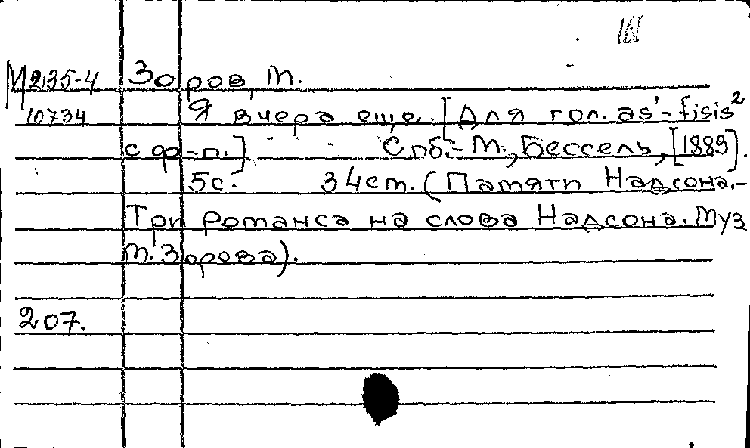 М 235-4 Зоров, М.
10734 Я вчера еще [Для гол. as'-fisis²
с ф-п.] Спб.-М., Бессель, [1889].
5с. 34см. (Памяти Надсона.-
Три романса на слова Надсона. Муз
М. Зорова).
207.